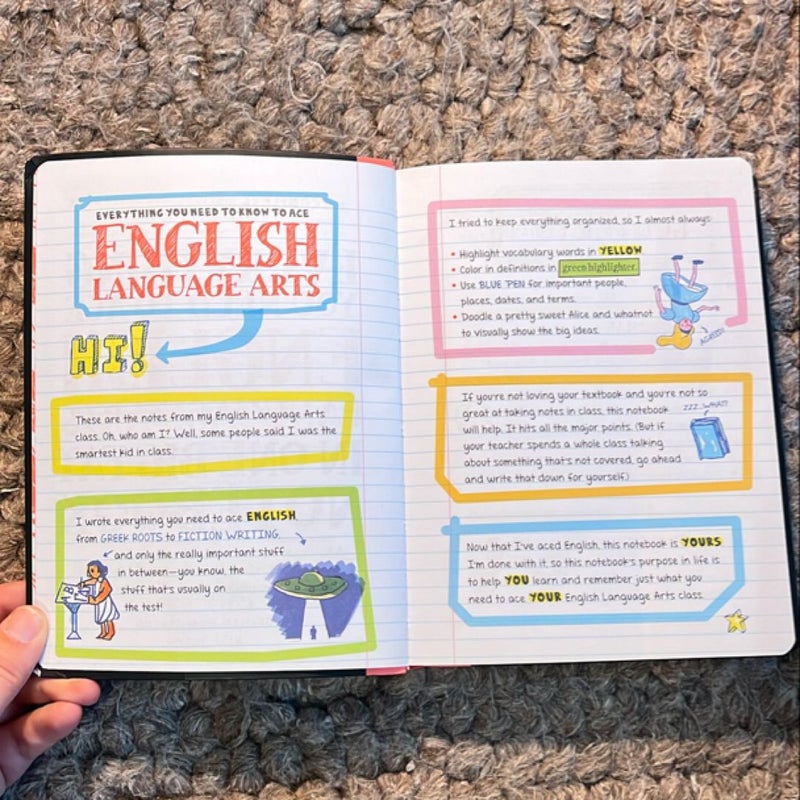 EVERYTHING YOU NEED TO KNOW TO ACE
ENGLISH
LANGUAGE ARTS
HI!
These are the notes from my English Language Arts
class. Oh, who am I? Well, some people said I was the
smartest kid in class.
I wrote everything you need to ace ENGLISH,
from GREEK ROOTS to FICTION WRITING,
and only the really important stuff
in between—you know, the
stuff that's usually on
the test!
I tried to keep everything organized, so I almost always:
• Highlight vocabulary words in YELLOW.
• Color in definitions in green highlighter.
• Use BLUE PEN for important people,
places, dates, and terms.
• Doodle a pretty sweet Alice and whatnot
to visually show the big ideas.
AGHHH!
If you're not loving your textbook and you're not so
great at taking notes in class, this notebook
will help. It hits all the major points. (But if
your teacher spends a whole class talking
about something that's not covered, go ahead
and write that down for yourself.)
ZZZ...WHAT?
Now that I've aced English, this notebook is YOURS.
I'm done with it, so this notebook's purpose in life is
to help YOU learn and remember just what you
need to ace YOUR English Language Arts class.